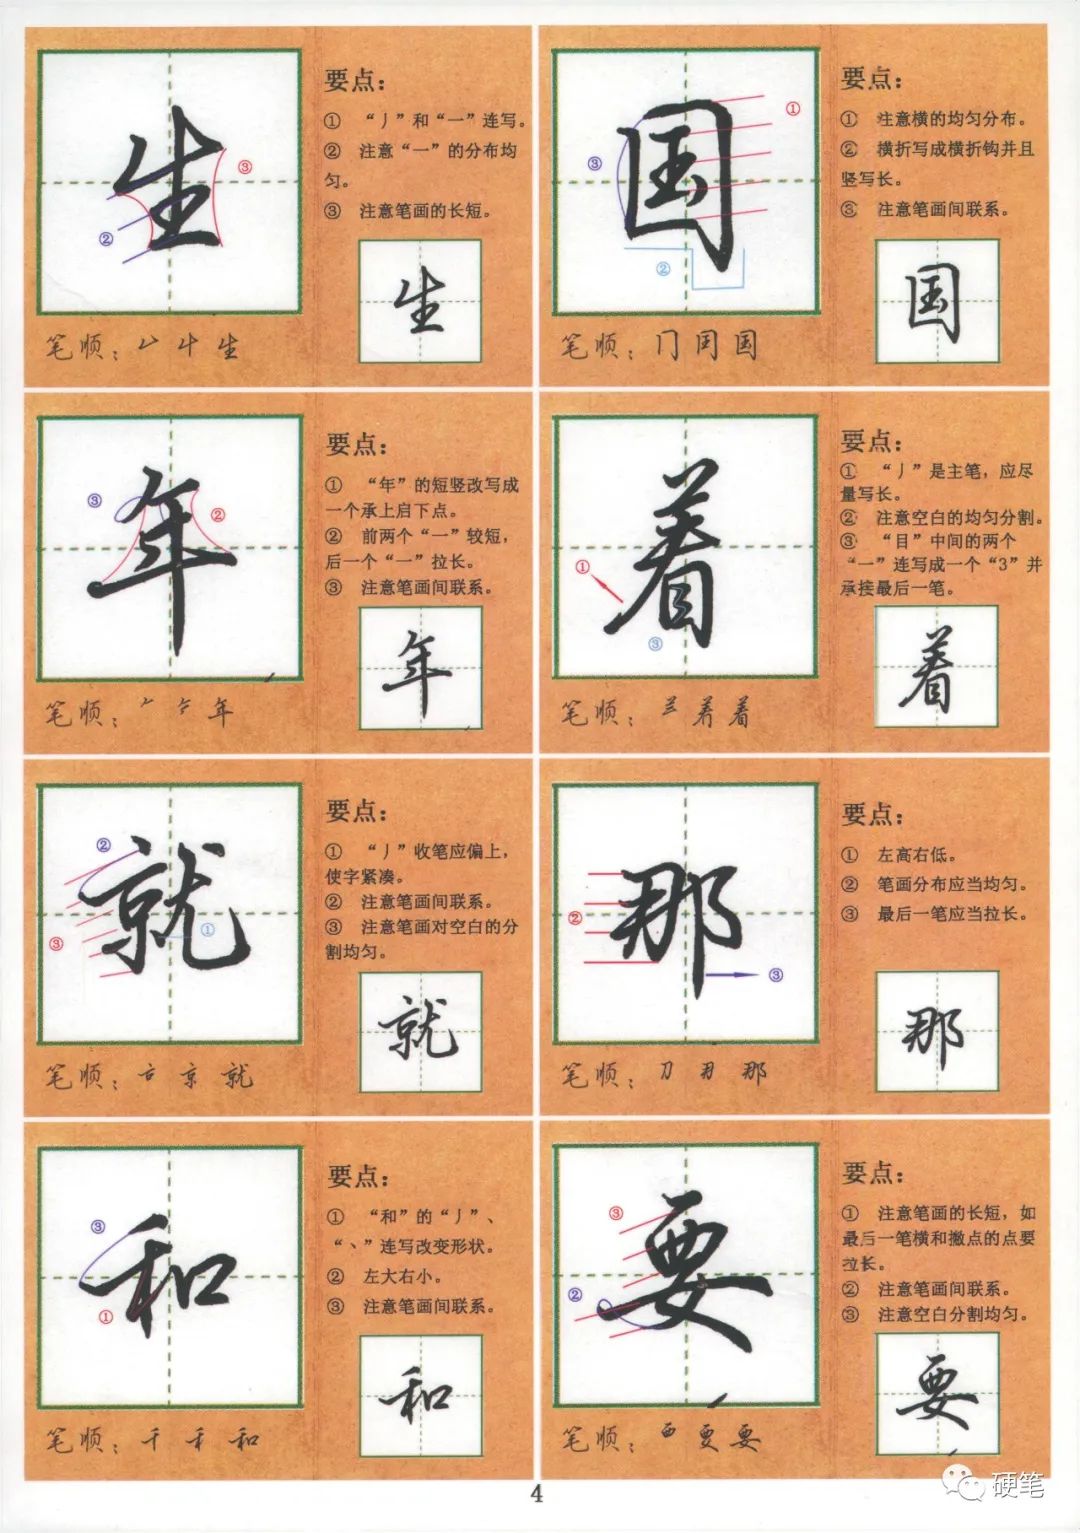 生
要点：
① “丿”和“一”连写。
② 注意“一”的分布均
匀。
③ 注意笔画的长短。
③
②
生
笔顺：𠂉 牛 生
国
要点：
① 注意横的均匀分布。
② 横折写成横折钩并且
竖写长。
③ 注意笔画间联系。
①
③
②
国
笔顺：冂 国 国
年
要点：
① “年”的短竖改写成
一个承上启下点。
② 前两个“一”较短，
后一个“一”拉长。
③ 注意笔画间联系。
③
②
年
笔顺：𠂉 年
着
要点：
① “丿”是主笔，应尽
量写长。
② 注意空白的均匀分割。
③ “目”中间的两个
“一”连写成一个“3”并
承接最后一笔。
①
③
着
笔顺：着 着
就
要点：
① “丿”收笔应偏上，
使字紧凑。
② 注意笔画间联系。
③ 注意笔画对空白的分
割均匀。
②
③
①
就
笔顺：京 就
那
要点：
① 左高右低。
② 笔画分布应当均匀。
③ 最后一笔应当拉长。
②
③
那
笔顺：刀 那
和
要点：
① “和”的“丿”、
“丶”连写改变形状。
② 左大右小。
③ 注意笔画间联系。
③
①
和
笔顺：千 禾 和
要
要点：
① 注意笔画的长短，如
最后一笔横和撇点的点要
拉长。
② 注意笔画间联系。
③ 注意空白分割均匀。
③
②
要
笔顺：覀 要 要
4
硬笔